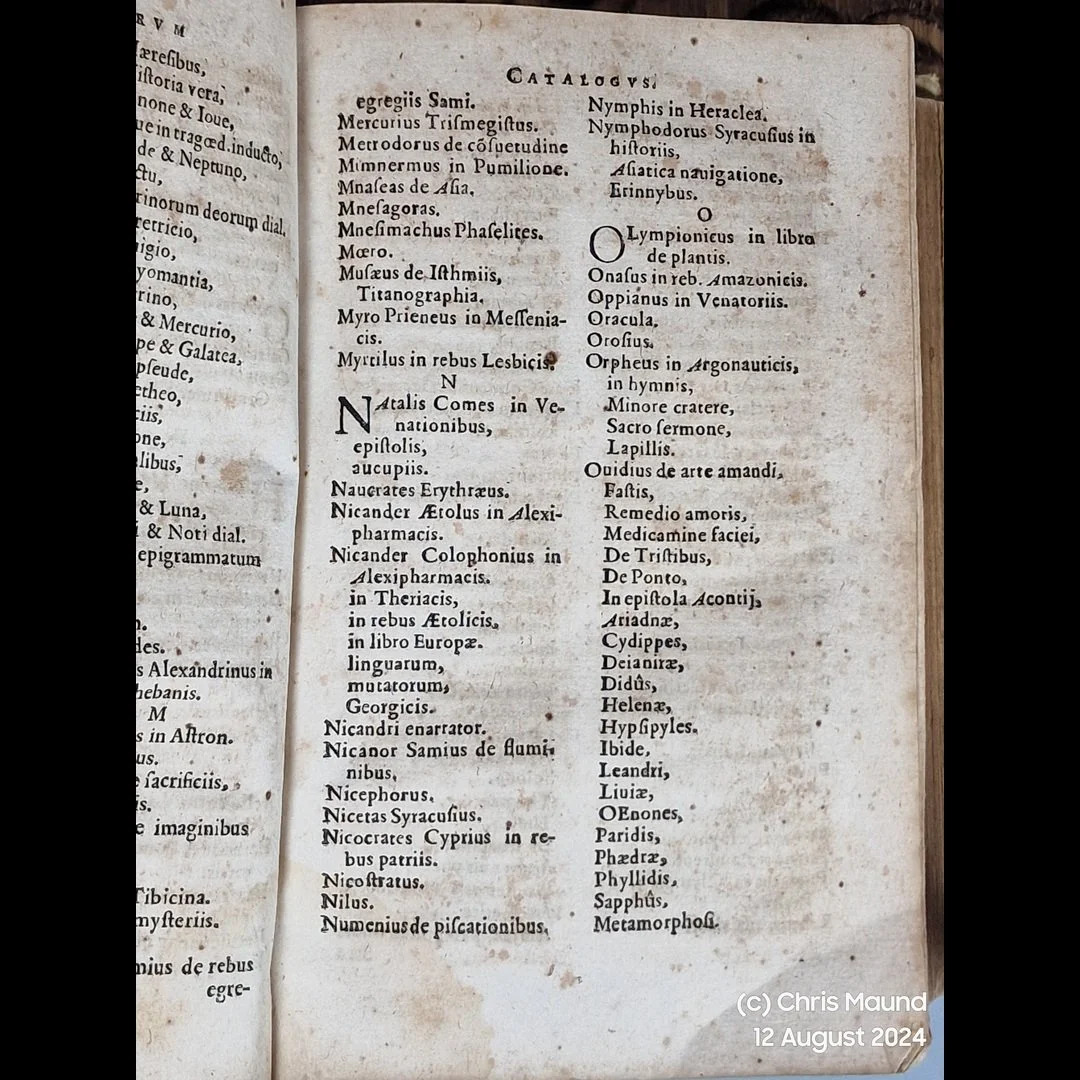 RVM
æreſibus,
iſtoria vera,
none & Ioue,
ue in tragœd. inducto,
de & Neptuno,
ctu,
rinorum deorum dial.
retricio,
igio,
yomantia,
rino,
& Mercurio,
pe & Galatea,
pſeude,
etheo,
ciis,
one,
libus,
e,
& Luna,
i & Noti dial.
epigrammatum
n.
des.
s Alexandrinus in
hebanis.
M
s in Aſtron.
us.
e ſacrificiis,
is.
e imaginibus
Tibicina.
myſteriis.
mius de rebus
egre-
CATALOGVS.
egregiis Sami.
Mercurius Triſmegiſtus.
Metrodorus de cõſuetudine
Mimnermus in Pumilione.
Mnaſeas de Aſia.
Mneſagoras.
Mneſimachus Phaſelites.
Mœro.
Muſæus de Iſthmiis,
Titanographia.
Myro Prieneus in Meſſenia-
cis.
Myrtilus in rebus Lesbicis.
N
NAtalis Comes in Ve-
nationibus,
epiſtolis,
aucupiis.
Naucrates Erythræus.
Nicander Ætolus in Alexi-
pharmacis.
Nicander Colophonius in
Alexipharmacis.
in Theriacis,
in rebus Ætolicis,
in libro Europæ.
linguarum,
mutatorum,
Georgicis.
Nicandri enarrator.
Nicanor Samius de flumi-
nibus.
Nicephorus.
Nicetas Syracuſius.
Nicocrates Cyprius in re-
bus patriis.
Nicoſtratus.
Nilus.
Numenius de piſcationibus.
Nymphis in Heraclea.
Nymphodorus Syracuſius in
hiſtoriis,
Aſiatica nauigatione,
Erinnybus.
O
OLympionicus in libro
de plantis.
Onaſus in reb. Amazonicis.
Oppianus in Venatoriis.
Oracula.
Oroſius.
Orpheus in Argonauticis,
in hymnis,
Minore cratere,
Sacro ſermone,
Lapillis.
Ouidius de arte amandi,
Faſtis,
Remedio amoris,
Medicamine faciei,
De Triſtibus,
De Ponto,
In epiſtola Acontij,
Ariadnæ,
Cydippes,
Deianiræ,
Didûs,
Helenæ,
Hypſipyles.
Ibide,
Leandri,
Liuiæ,
OEnones,
Paridis,
Phædræ,
Phyllidis,
Sapphûs,
Metamorphoſi.
(c) Chris Maund
12 August 2024